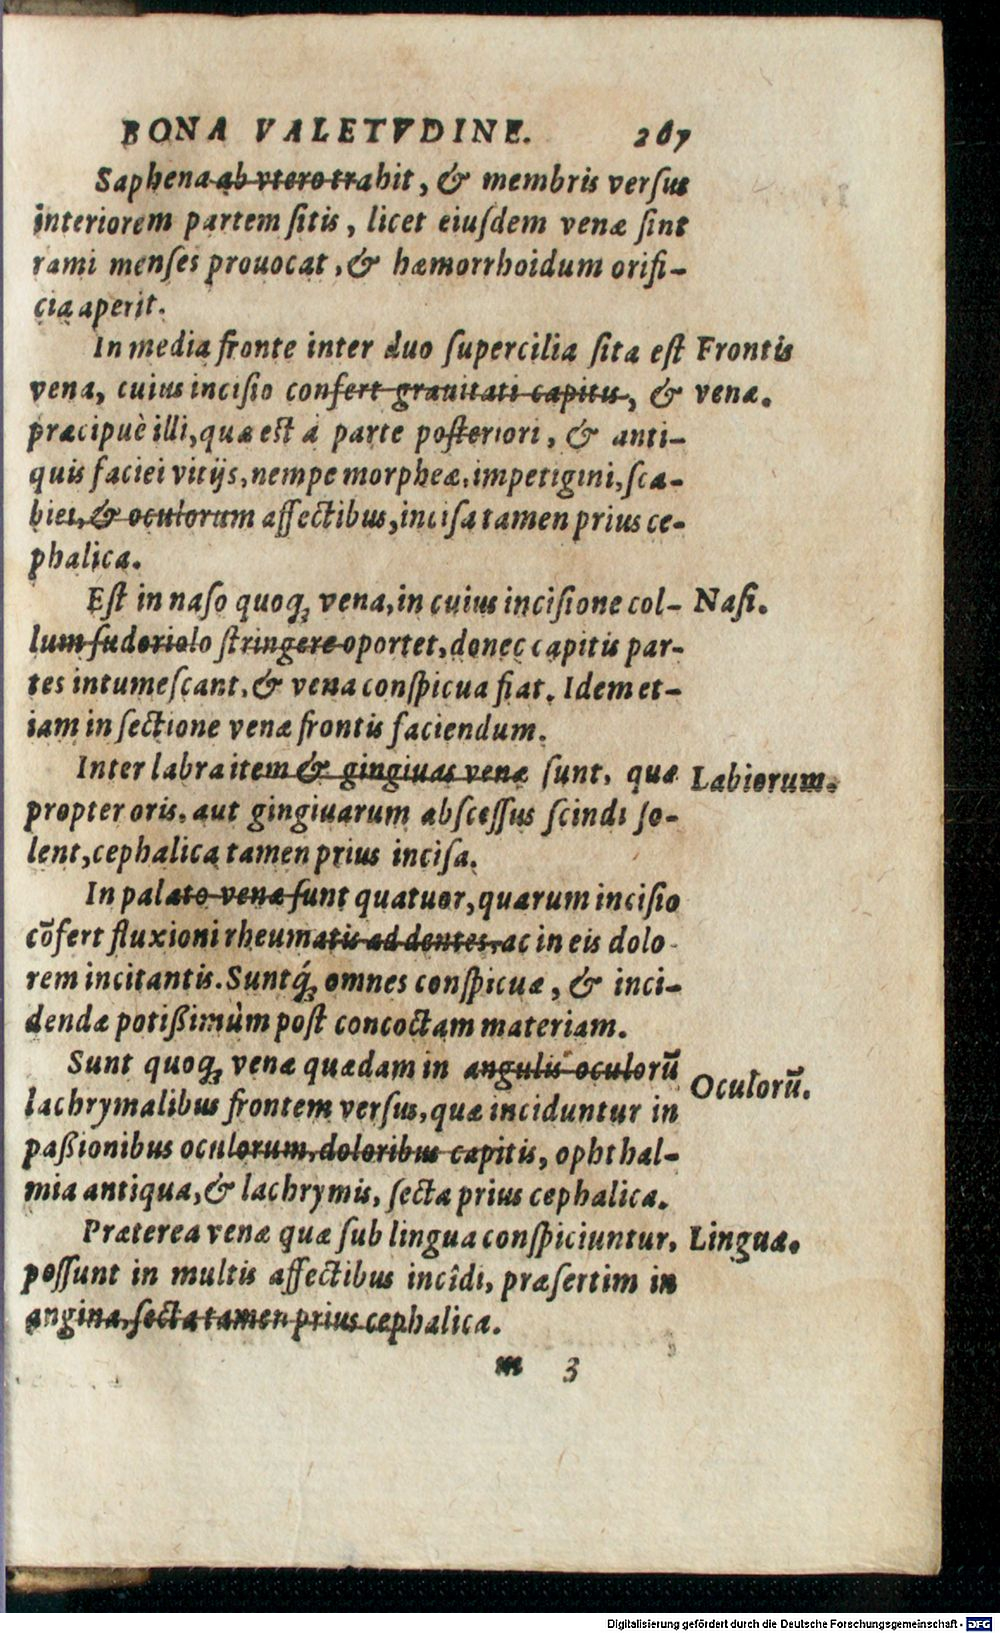 BONA VALETVDINE. 267
Saphena ab vtero trahit, & membris versus
interiorem partem sitis, licet eiusdem venæ sint
rami menses prouocat, & hæmorrhoidum orifi-
cia aperit.
In media fronte inter duo supercilia sita est Frontis
vena, cuius incisio confert grauitati capitis, & venæ.
præcipuè illi, quæ est à parte posteriori, & anti-
quis faciei vitijs, nempe morpheæ, impetigini, sca-
biei, & oculorum affectibus, incisa tamen prius ce-
phalica.
Est in naso quoq; vena, in cuius incisione col- Nasi.
lum sudoriolo stringere oportet, donec capitis par-
tes intumescant, & vena conspicua fiat. Idem et-
iam in sectione venæ frontis faciendum.
Inter labra item & gingiuas venæ sunt, quæ Labiorum.
propter oris, aut gingiuarum abscessus scindi so-
lent, cephalica tamen prius incisa.
In palato venæ sunt quatuor, quarum incisio
cõfert fluxioni rheumatis ad dentes, ac in eis dolo-
rem incitantis. Suntq́; omnes conspicuæ, & inci-
dendæ potißimùm post concoctam materiam.
Sunt quoq; venæ quædam in angulis oculorũ Oculorũ.
lachrymalibus frontem versus, quæ inciduntur in
paßionibus oculorum, doloribus capitis, ophthal-
mia antiqua, & lachrymis, secta prius cephalica.
Præterea venæ quæ sub lingua conspiciuntur, Linguæ.
possunt in multis affectibus incîdi, præsertim in
angina, secta tamen prius cephalica.
m 3
Digitalisierung gefördert durch die Deutsche Forschungsgemeinschaft - DFG